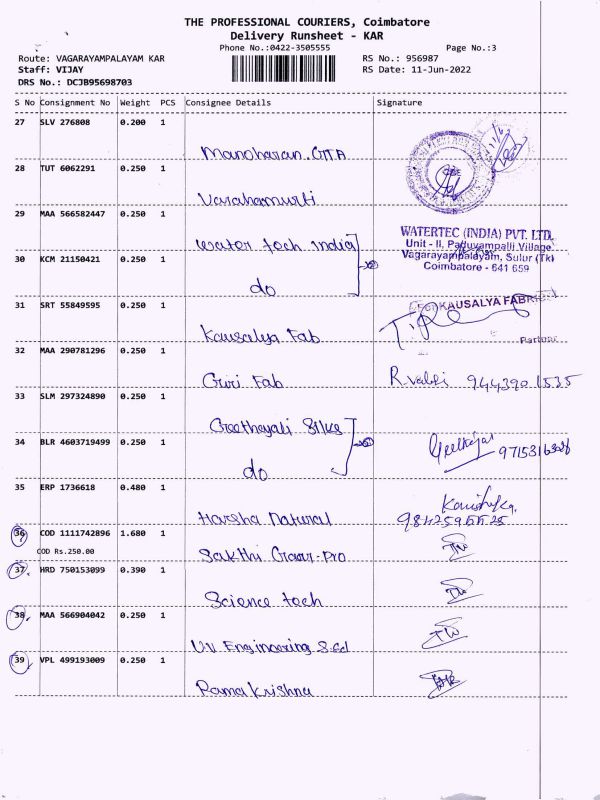 THE PROFESSIONAL COURIERS, Coimbatore
Delivery Runsheet - KAR
Phone No.:0422-3505555 Page No.:3
Route: VAGARAYAMPALAYAM KAR RS No.: 956987
Staff: VIJAY RS Date: 11-Jun-2022
DRS No.: DCJB95698703
S No Consignment No Weight PCS Consignee Details Signature
27 SLV 276808 0.200 1
Manoharan.
28 TUT 6062291 0.250 1
Varahamurti
29 MAA 566582447 0.250 1
Water tech India
WATERTEC (INDIA) PVT. LTD.
Unit - II, Paduvampalli Village
30 KCM 21150421 0.250 1 Vagarayampalayam, Sulur (Tk)
Coimbatore - 641 659
do
31 SRT 55849595 0.250 1
For KAUSALYA FABRI
Kausalya Fab Partner
32 MAA 290781296 0.250 1
Giri Fab
33 SLM 297324890 0.250 1
Geethayali Silks
34 BLR 4603719499 0.250 1
do
35 ERP 1736618 0.480 1
Harsha Natural
36 COD 1111742896 1.680 1
COD Rs.250.00
Sakthi Gear-pro
37 HRD 750153099 0.390 1
Science tech
38 MAA 566904042 0.250 1
UV Engineering
39 VPL 499193009 0.250 1
Rama Krishna